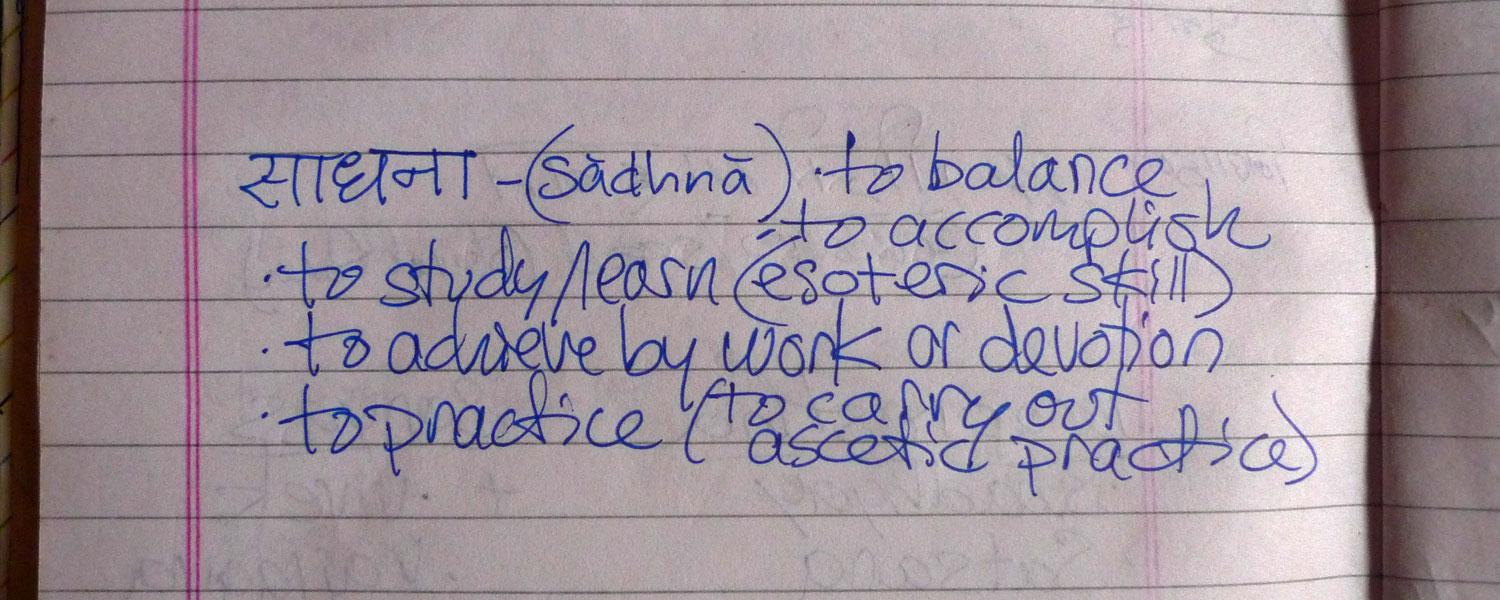 साधना - (sādhnā) · to balance
· to accomplish
· to study/learn (esoteric skill)
· to achieve by work or devotion
· to practice (to carry out
ascetic practice)